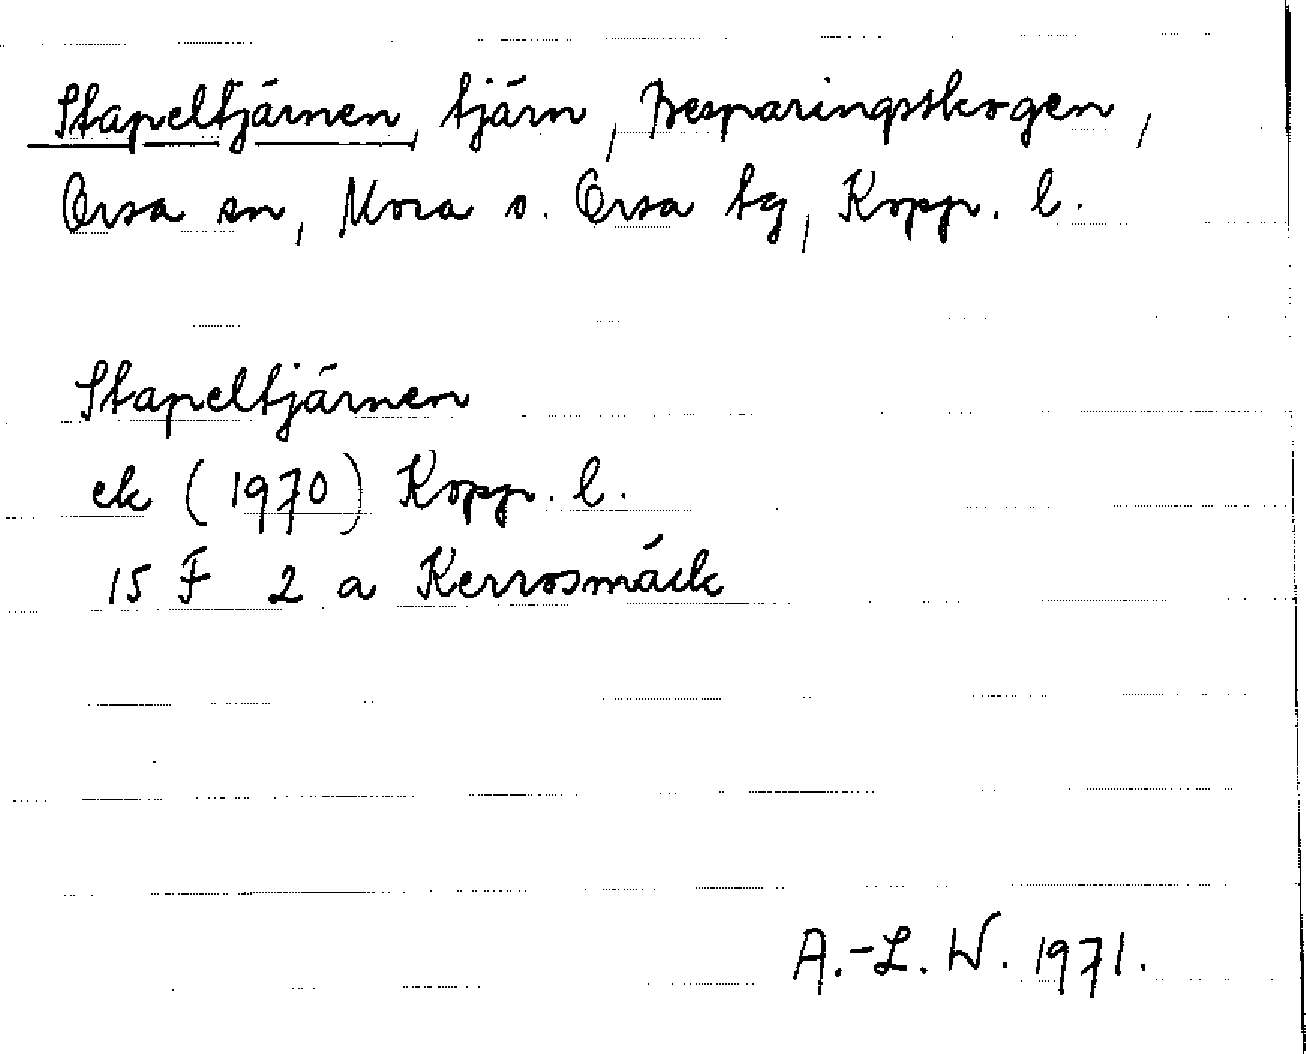 Stapeltjärnen, tjärn, Besparingsskogen,
Orsa sn, Mora o. Orsa tg, Kopp. l.
Stapeltjärnen
ek (1970) Kopp. l.
15 F 2 a Kerrosmäck
A.-L. W. 1971.